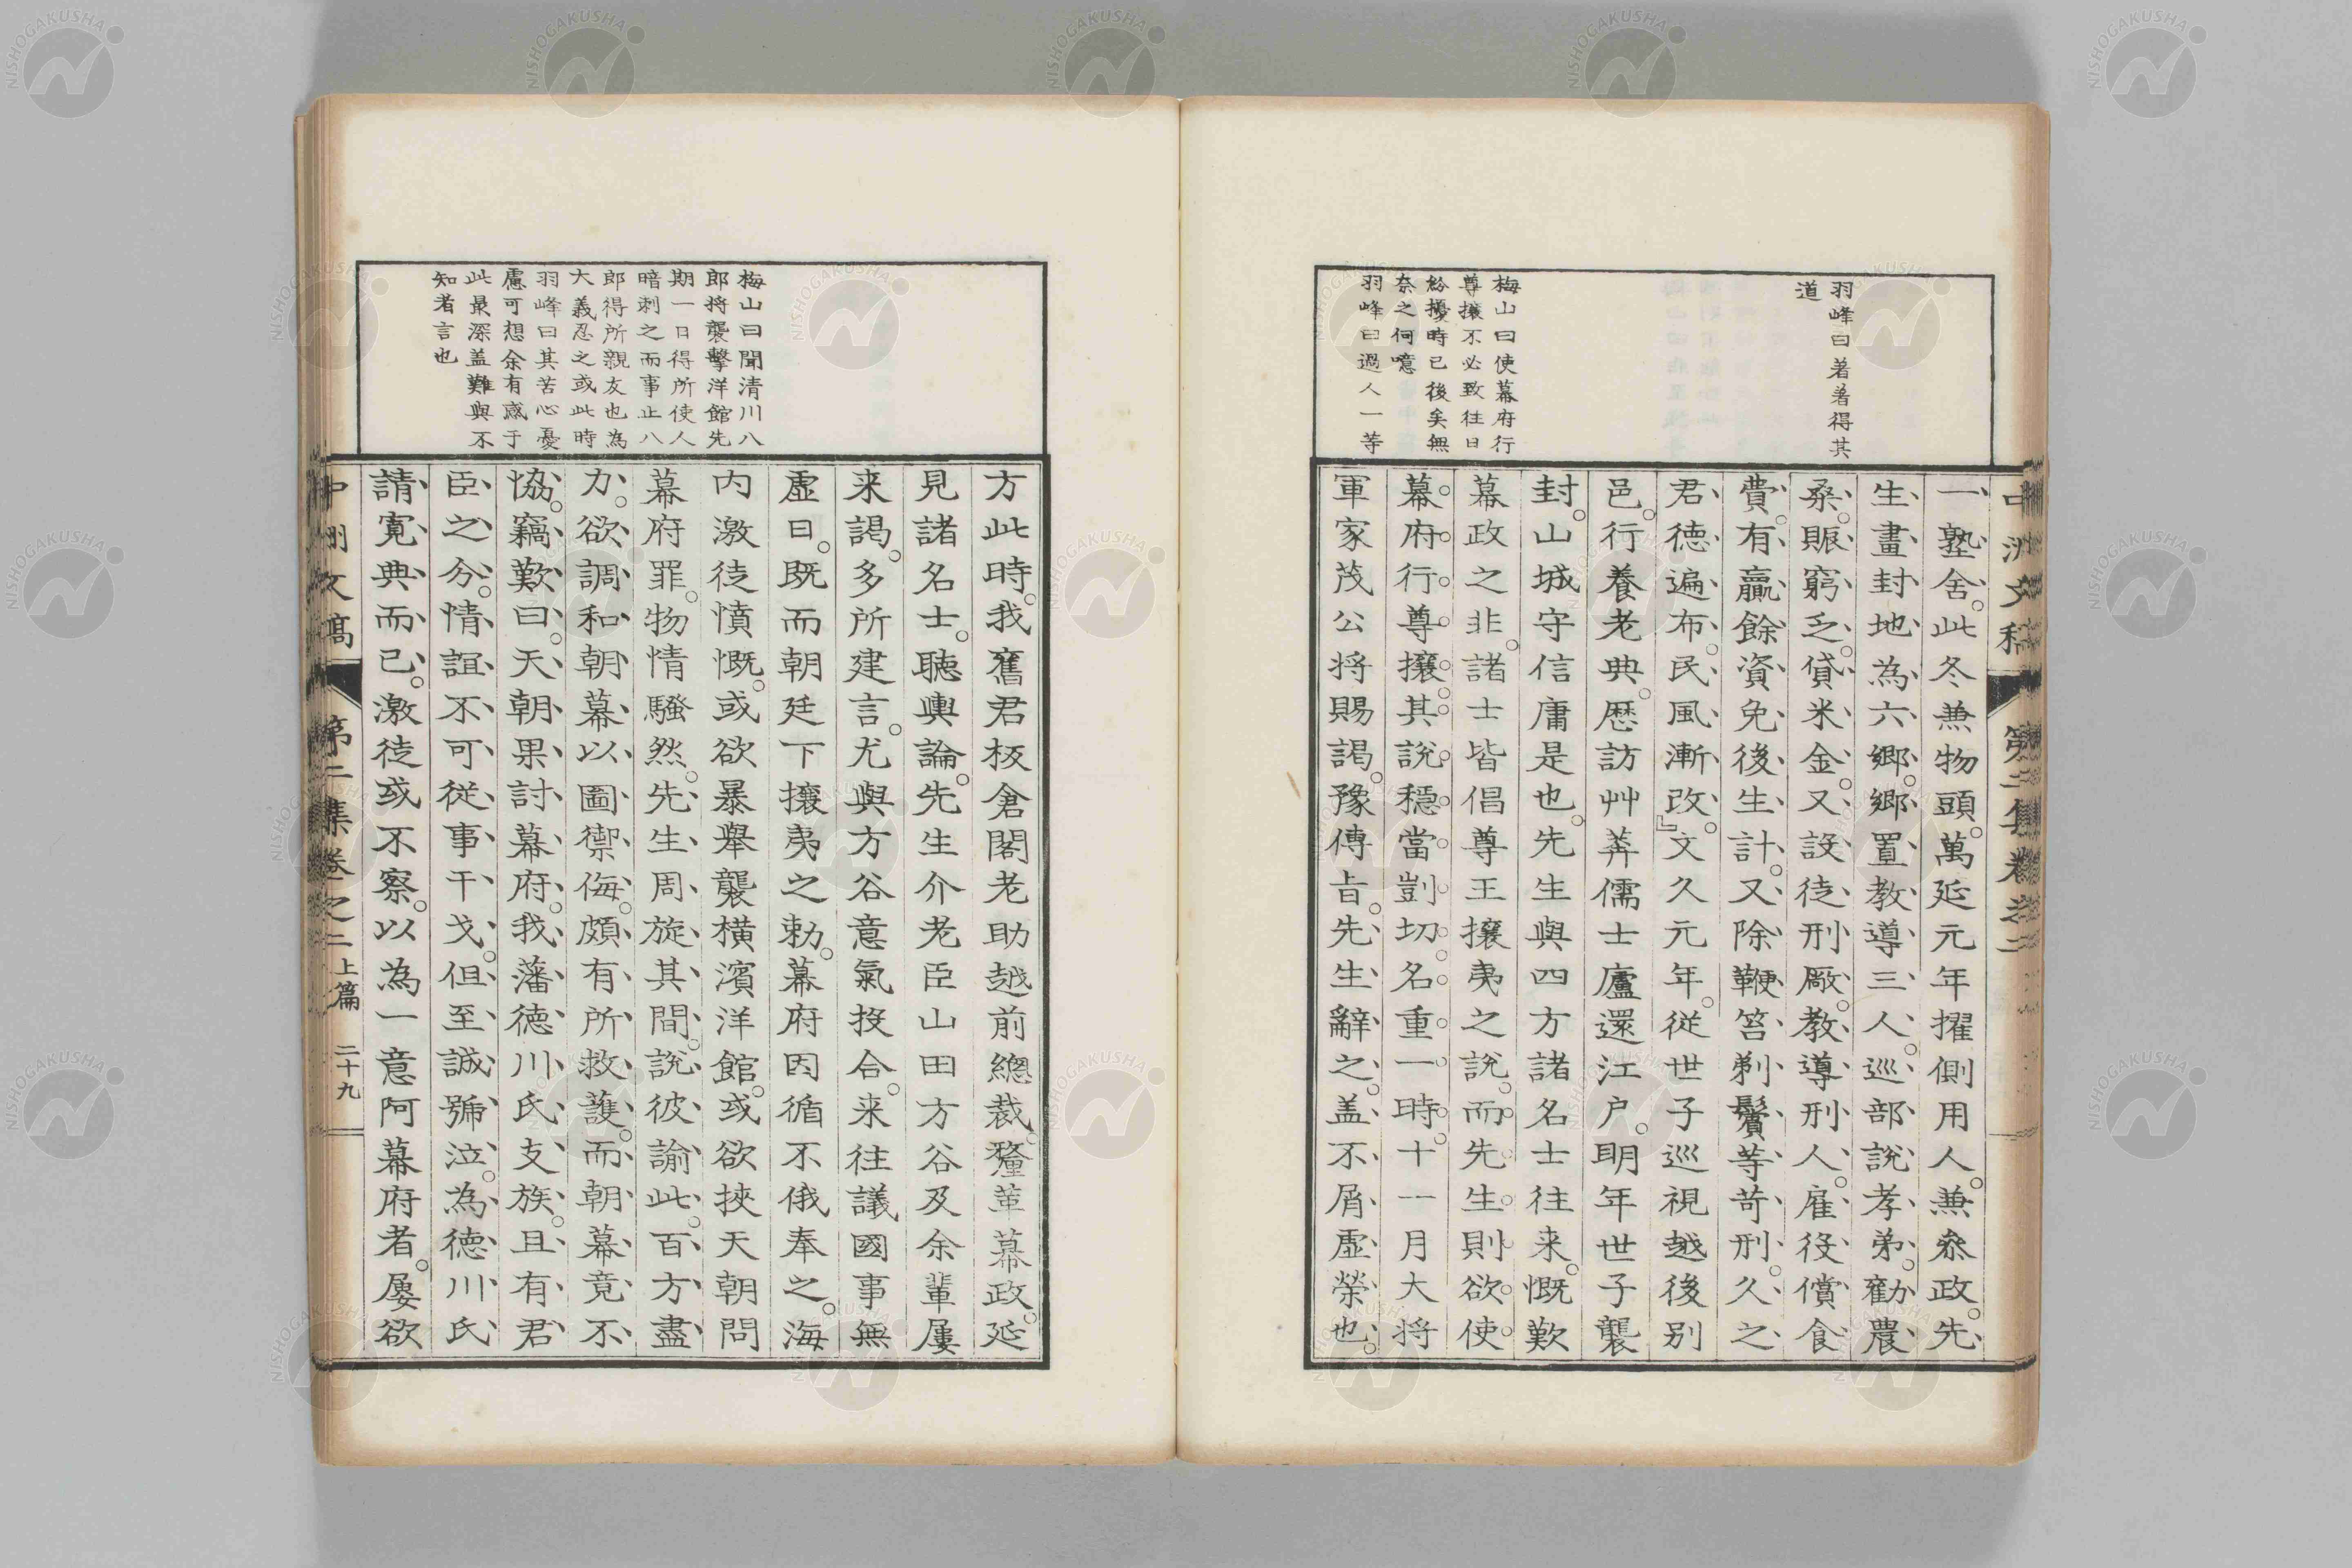 羽峰曰著著得其
道
梅山曰使幕府行
尊攘不必致往日
紛擾時已後矣無
奈之何噫
羽峰曰過人一等
一塾舍。此冬兼物頭。萬延元年擢側用人。兼參政。先
生畫封地為六鄉。鄉置教導三人。巡部說孝弟。勸農
桑。賑窮乏。貸米金。又設徒刑廠。教導刑人。雇役償食
費。有贏餘資免後生計。又除鞭笞剃鬢等苛刑。久之
君德遍布。民風漸改。』文久元年。從世子巡視越後別
邑。行養老典。歷訪艸莽儒士廬還江户。明年世子襲
封。山城守信庸是也。先生與四方諸名士往来。慨歎
幕政之非。諸士皆倡尊王攘夷之說。而先生則欲使
幕府行尊攘。其說穩當剴切。名重一時。十一月大将
軍家茂公将賜謁。豫傳旨。先生辭之。盖不屑虛榮也。
梅山曰聞清川八
郎将襲擊洋館先
期一日得所使人
暗刺之而事止八
郎得所親友也為
大義忍之或此時
羽峰曰其苦心憂
慮可想余有感于
此最深盖難與不
知者言也
方此時。我舊君板倉閣老助越前總裁。釐革幕政。延
見諸名士。聽輿論。先生介老臣山田方谷及余輩屢
来謁。多所建言。尤與方谷意氣投合。来往議國事無
虛日。既而朝廷下攘夷之勅。幕府因循不俄奉之。海
内激徒憤慨。或欲暴舉襲橫濱洋館。或欲挾天朝問
幕府罪。物情騷然。先生周旋其間。說彼諭此。百方盡
力。欲調和朝幕以圖禦侮。頗有所救護。而朝幕竟不
協。竊歎曰。天朝果討幕府。我藩德川氏支族。且有君
臣之分。情誼不可從事干戈。但至誠號泣。為德川氏
請寬典而已。激徒或不察。以為一意阿幕府者。屢欲
中洲文稿 第二集卷之二上篇 二十九